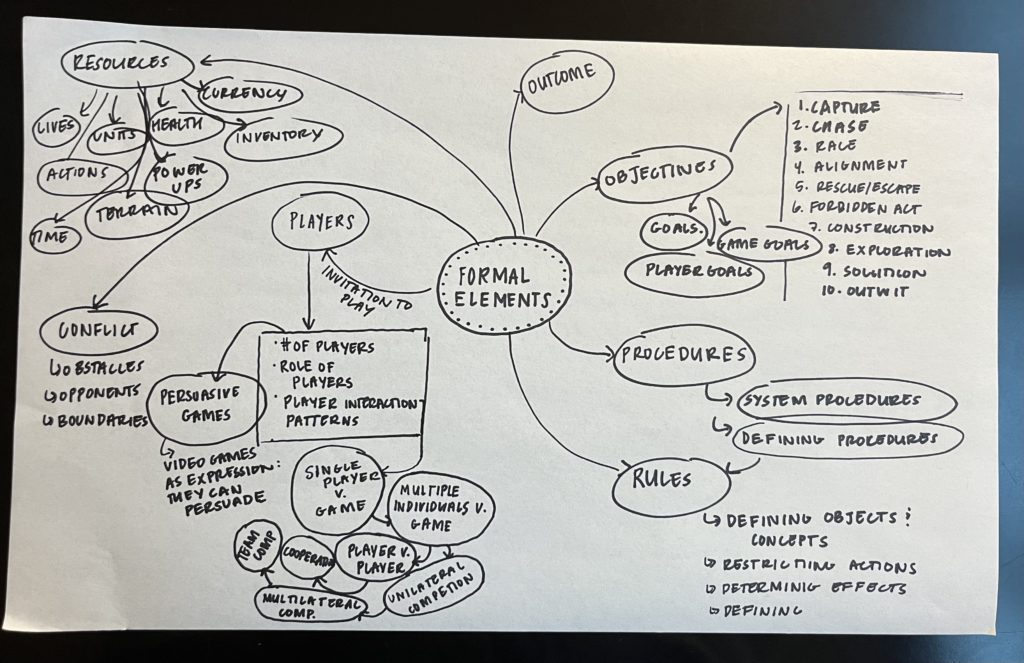 RESOURCES
LIVES
UNITS
HEALTH
CURRENCY
INVENTORY
ACTIONS
POWER
UPS
TERRAIN
TIME
OUTCOME
OBJECTINES
GOALS
GAME GOALS
PLAYER GOALS
1. CAPTURE
2. CHASE
3. RACE
4. ALIGNMENT
5. RESCUE/ESCAPE
6. FORBIDDEN ACT
7. CONSTRUCTION
8. EXPLORATION
9. SOLUTION
10. OUTWIT
PLAYERS
INVITATION TO
PLAY
FORMAL
ELEMENTS
CONFLICT
OBSTACLES
OPPONENTS
BOUNDARIES
PERSUASIVE
GAMES
VIDEO GAMES
AS EXPRESSION:
THEY CAN
PERSUADE
• # OF PLAYERS
• ROLE OF
PLAYERS
• PLAYER INTERACTION
PATTERNS
SINGLE
PLAYER
V.
GAME
MULTIPLE
INDIVIDUALS V.
GAME
PLAYER V.
PLAYER
UNILATERAL
COMPETION
MULTILATERAL
COMP.
TEAM
COMP
PROCEDURES
SYSTEM PROCEDURES
DEFINING PROCEDURES
RULES
DEFINING OBJECTS &
CONCEPTS
RESTRICTING ACTIONS
DETERMINIG EFFECTS
DEFINING